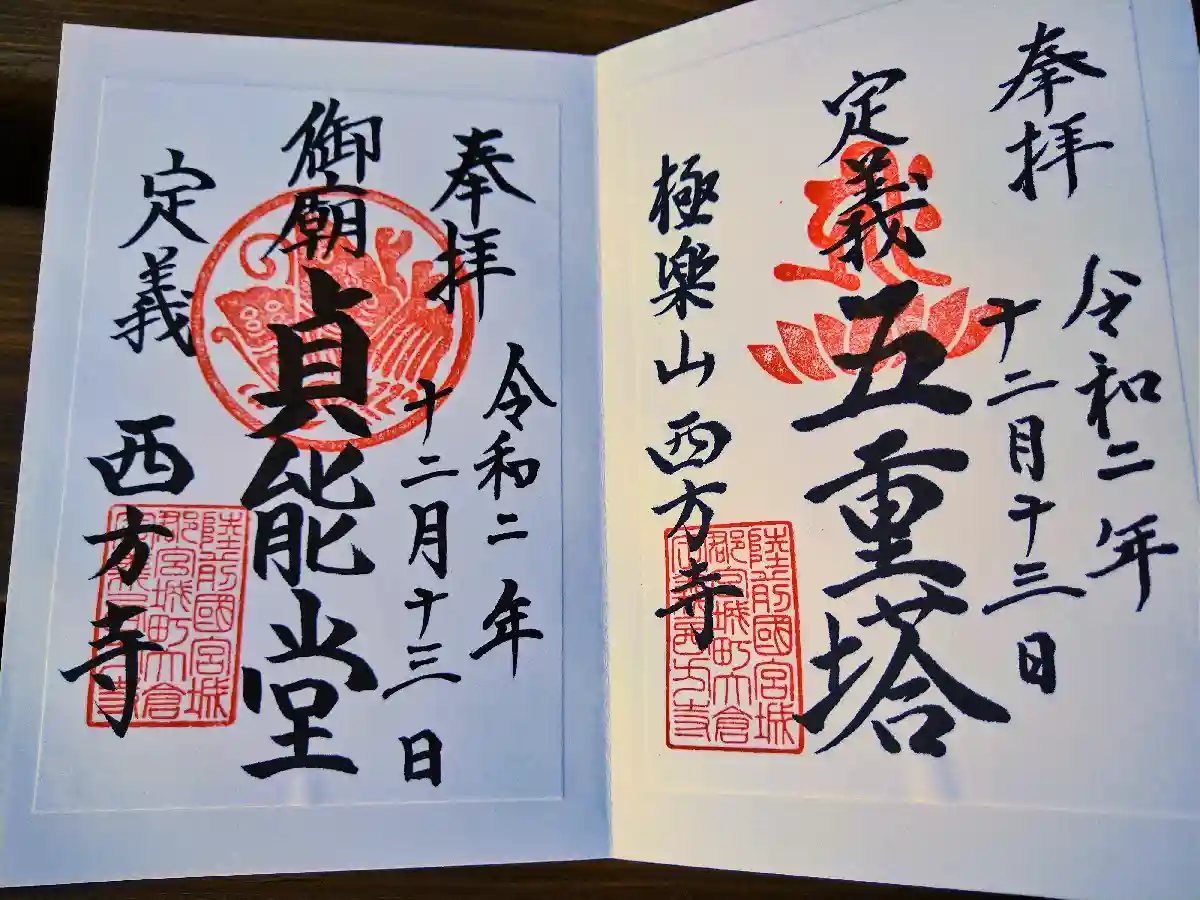 奉拝
令和二年
十二月十三日
定義五重塔
極楽山西方寺
陸前國宮城
郡宮城町大倉
定義西方寺
奉拝
令和二年
十二月十三日
御廟貞能堂
定義西方寺
陸前國宮城
郡宮城町大倉
定義西方寺